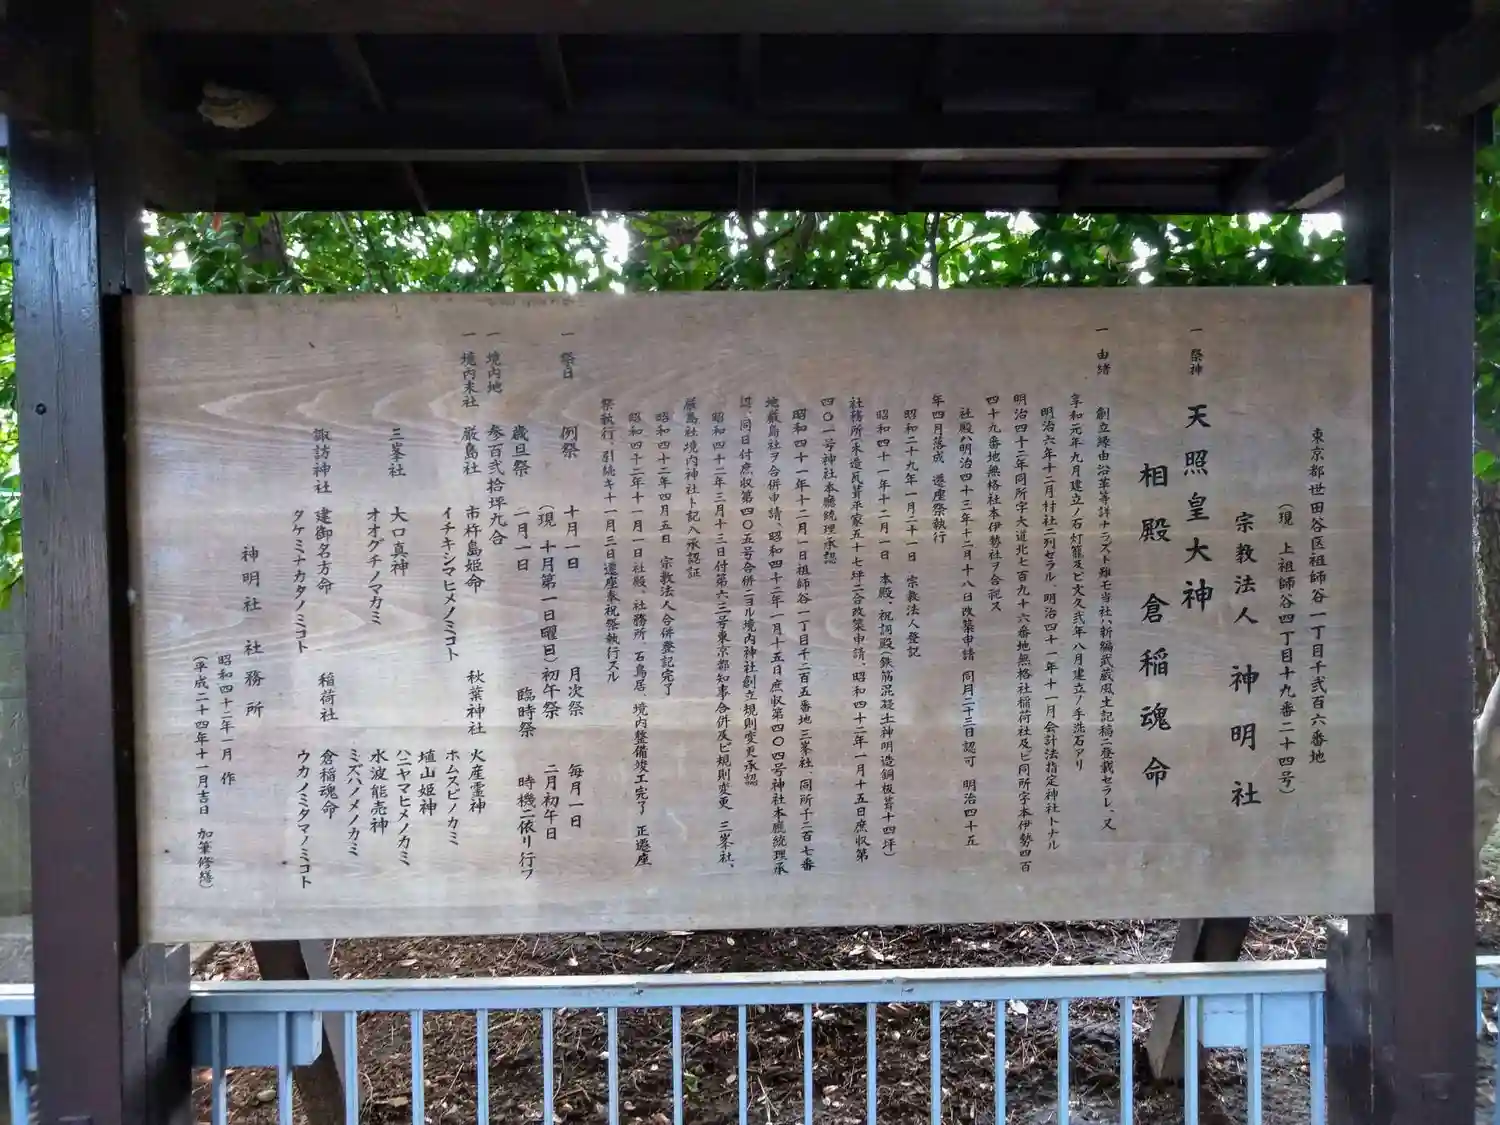 東京都世田谷区祖師谷一丁目千弐百六番地
（現　上祖師谷四丁目十九番二十四号）
宗教法人　神明社
一　祭神　天照皇大神
相殿　倉稲魂命
一　由緒　創立縁由沿革等詳ナラズト雖モ当社ハ新編武蔵風土記稿ニ登載セラレ、又
享和元年九月建立ノ石灯籠及ビ文久弐年八月建立ノ手洗石アリ
明治六年十二月村社ニ列セラル、明治四十一年十一月会計法指定神社トナル
明治四十二年同所字大道北七百九十六番地無格社稲荷社及ビ同所字本伊勢四百
四十九番地無格社本伊勢社ヲ合祀ス
社殿ハ明治四十三年十二月十八日改築申請　同月二十三日認可　明治四十五
年四月落成　遷座祭執行
昭和二十九年一月二十一日　宗教法人登記
昭和四十一年十二月一日　本殿、祝詞殿（鉄筋混凝土神明造銅板葺十四坪）
社務所（木造瓦葺平家五十七坪二合改築申請、昭和四十二年一月十五日庶収第
四〇一号神社本廳統理承認
昭和四十一年十二月一日祖師谷一丁目千二百五番地三峯社、同所千二百七番
地厳島社ヲ合併申請、昭和四十二年一月十五日庶収第四〇四号神社本廳統理承
認、同日付庶収第四〇五号合併ニヨル境内神社創立規則変更承認
昭和四十二年三月十三日付第六三号東京都知事合併及ビ規則変更　三峯社、
厳島社境内神社ト記入承認証
昭和四十二年四月五日　宗教法人合併登記完了
昭和四十二年十一月一日社殿、社務所　石鳥居、境内整備竣工完了　正遷座
祭執行、引続キ十一月三日遷座奉祝祭執行スル
一　祭日　例祭　十月一日　月次祭　毎月一日
（現　十月第一日曜日）初午祭　二月初午日
歳旦祭　一月一日　臨時祭　時機ニ依リ行フ
一　境内地　参百弐拾坪九合
一　境内末社　厳島社　市杵島姫命　秋葉神社　火産霊神
イチキシマヒメノミコト　ホムスビノカミ
埴山姫神
三峯社　大口真神　ハニヤマヒメノカミ
オオグチノマカミ　水波能売神
ミズハノメノカミ
諏訪神社　建御名方命　稲荷社　倉稲魂命
タケミナカタノミコト　ウカノミタマノミコト
神明社　社務所
昭和四十二年一月　作
（平成二十四年十一月吉日　加筆修繕）